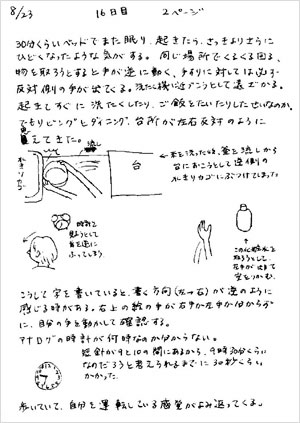 8/23 16日目 2ページ
30分くらいベッドでまた眠り、起きたら、さっきよりさらに
ひどくなったような気がする。同じ場所でくるくる回る、
物を取ろうとすると手が逆に動く、手すりに対しては必ず
反対側の手が出てくる。洗たく機に近づこうとして遠ざかる。
起きてすぐに洗たくしたり、ご飯をたいたりしたせいなのか。
でもリビングもダイニング、台所が左右反対のように
見えてきた。
流し
水きりカゴ
台
←米を洗った時、釜を流しから
台におこうとして逆側の
水きりカゴにぶつけてしまった
時計を
見ようとして
首を逆に
ふってしまう
↑
この化粧水を
取ろうとして、
左手が出て
空をつかむ。
こうして字を書いていると、書く方向(左→右)が逆のように
感じる時がある。右上の絵の手が右手か左手か分からず
に、自分の手を動かして確認する。
アナログの時計が何時なのか分からない。
短針が9と10の間にあるから、9時30分くらい
なのだろうと考えられるまでに30秒くらい
かかった。
歩いていて、自分を運転している感覚がよみ返ってくる。